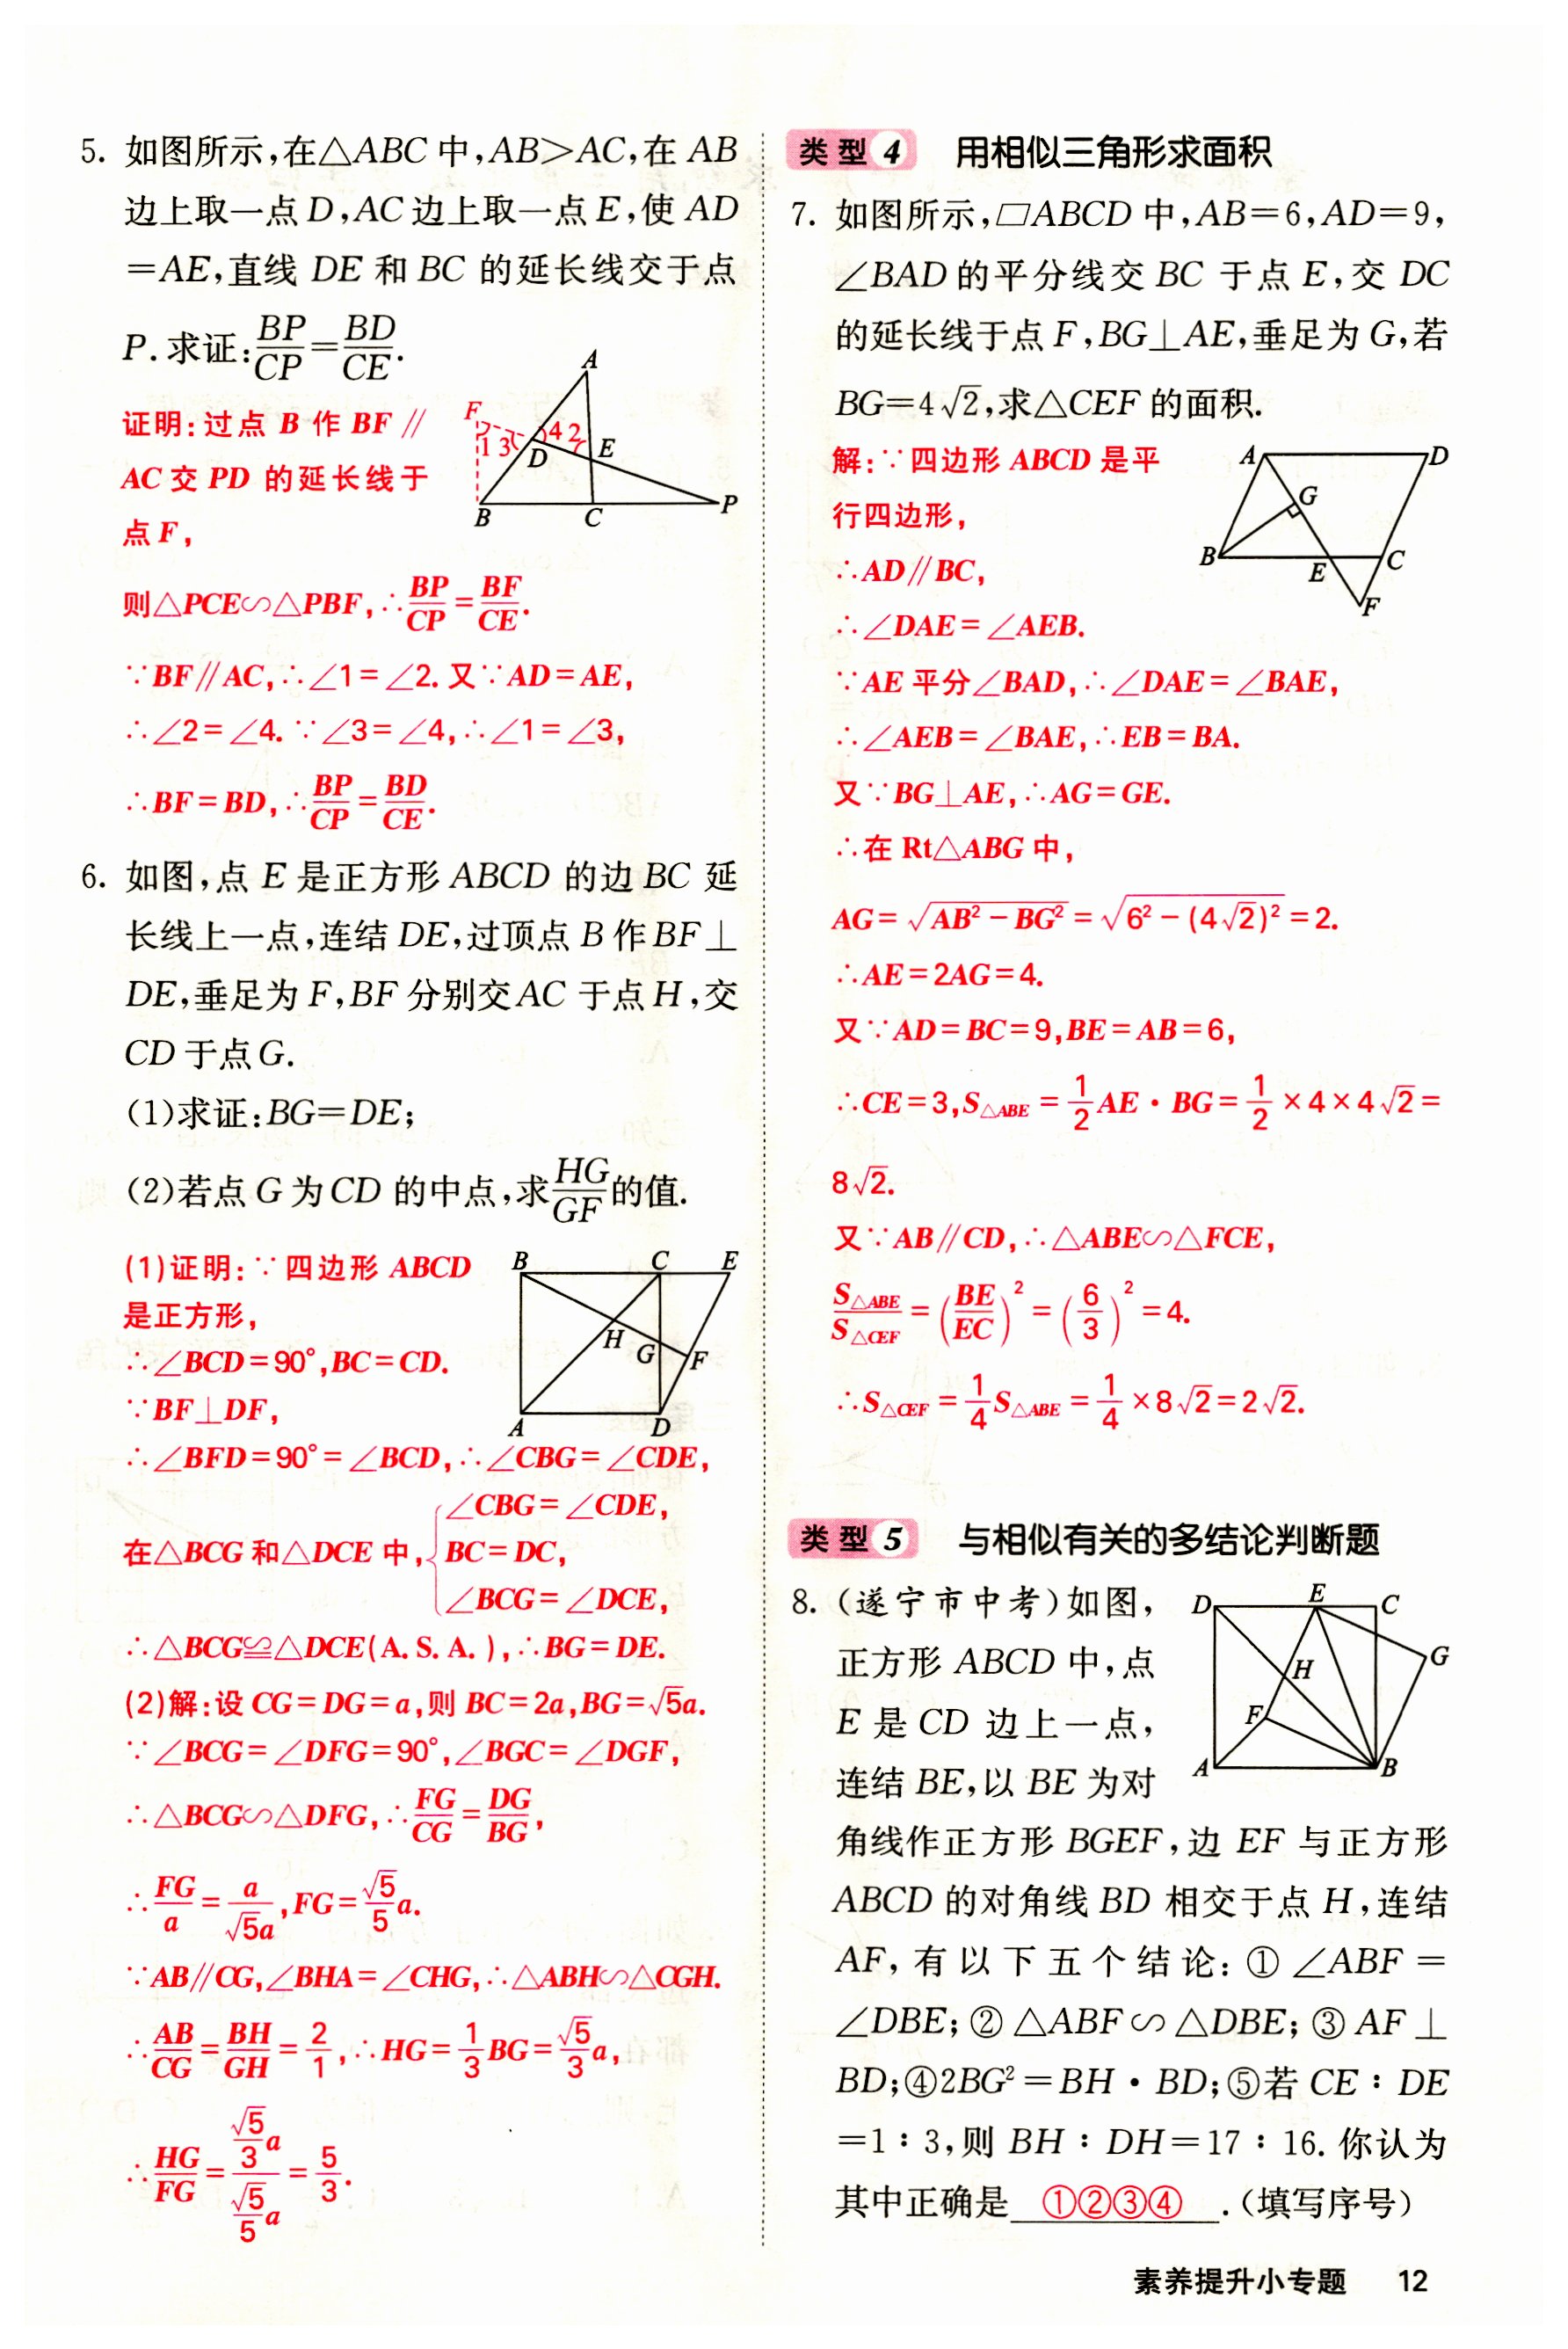 5. 如图所示,在△ABC 中,AB>AC,在 AB
边上取一点 D,AC 边上取一点 E,使 AD
=AE,直线 DE 和 BC 的延长线交于点
P. 求证:BP/CP=BD/CE.
证明:过点 B 作 BF∥
AC 交 PD 的延长线于
点 F,
A
F
1 3 4 2
D
E
B
C
P
则△PCE∽△PBF,∴BP/CP=BF/CE.
∵BF∥AC,∴∠1=∠2. 又∵AD=AE,
∴∠2=∠4. ∵∠3=∠4,∴∠1=∠3,
∴BF=BD,∴BP/CP=BD/CE.
6. 如图,点 E 是正方形 ABCD 的边 BC 延
长线上一点,连结 DE,过顶点 B 作 BF⊥
DE,垂足为 F,BF 分别交 AC 于点 H,交
CD 于点 G.
(1)求证:BG=DE;
(2)若点 G 为 CD 的中点,求HG/GF的值.
(1)证明:∵四边形 ABCD
是正方形,
∴∠BCD=90°,BC=CD.
∵BF⊥DF,
B
C
E
H
G
F
A
D
∴∠BFD=90°=∠BCD,∴∠CBG=∠CDE,
∠CBG=∠CDE,
在△BCG 和△DCE 中,{BC=DC,
∠BCG=∠DCE,
∴△BCG≌△DCE(A. S. A. ),∴BG=DE.
(2)解:设 CG=DG=a,则 BC=2a,BG=√5a.
∵∠BCG=∠DFG=90°,∠BGC=∠DGF,
∴△BCG∽△DFG,∴FG/CG=DG/BG,
∴FG/a=a/√5a,FG=√5/5a.
∵AB∥CG,∠BHA=∠CHG,∴△ABH∽△CGH.
∴AB/CG=BH/GH=2/1,∴HG=1/3BG=√5/3a,
∴HG/FG=(√5/3a)/(√5/5a)=5/3.
类型4 用相似三角形求面积
7. 如图所示,▱ABCD 中,AB=6,AD=9,
∠BAD 的平分线交 BC 于点 E,交 DC
的延长线于点 F,BG⊥AE,垂足为 G,若
BG=4√2,求△CEF 的面积.
解:∵四边形 ABCD 是平
行四边形,
∴AD∥BC,
∴∠DAE=∠AEB.
A
D
G
B
E
C
F
∵AE 平分∠BAD,∴∠DAE=∠BAE,
∴∠AEB=∠BAE,∴EB=BA.
又∵BG⊥AE,∴AG=GE.
∴在 Rt△ABG 中,
AG=√(AB²-BG²)=√(6²-(4√2)²)=2.
∴AE=2AG=4.
又∵AD=BC=9,BE=AB=6,
∴CE=3,S△ABE=1/2AE·BG=1/2×4×4√2=
8√2.
又∵AB∥CD,∴△ABE∽△FCE,
S△ABE/S△CEF=(BE/EC)²=(6/3)²=4.
∴S△CEF=1/4S△ABE=1/4×8√2=2√2.
类型5 与相似有关的多结论判断题
8. (遂宁市中考)如图,
正方形 ABCD 中,点
E 是 CD 边上一点,
连结 BE,以 BE 为对
D
E
C
G
H
F
A
B
角线作正方形 BGEF,边 EF 与正方形
ABCD 的对角线 BD 相交于点 H,连结
AF,有以下五个结论:①∠ABF=
∠DBE;②△ABF∽△DBE;③AF⊥
BD;④2BG²=BH·BD;⑤若 CE∶DE
=1∶3,则 BH∶DH=17∶16. 你认为
其中正确是 ①②③④ .(填写序号)
素养提升小专题 12